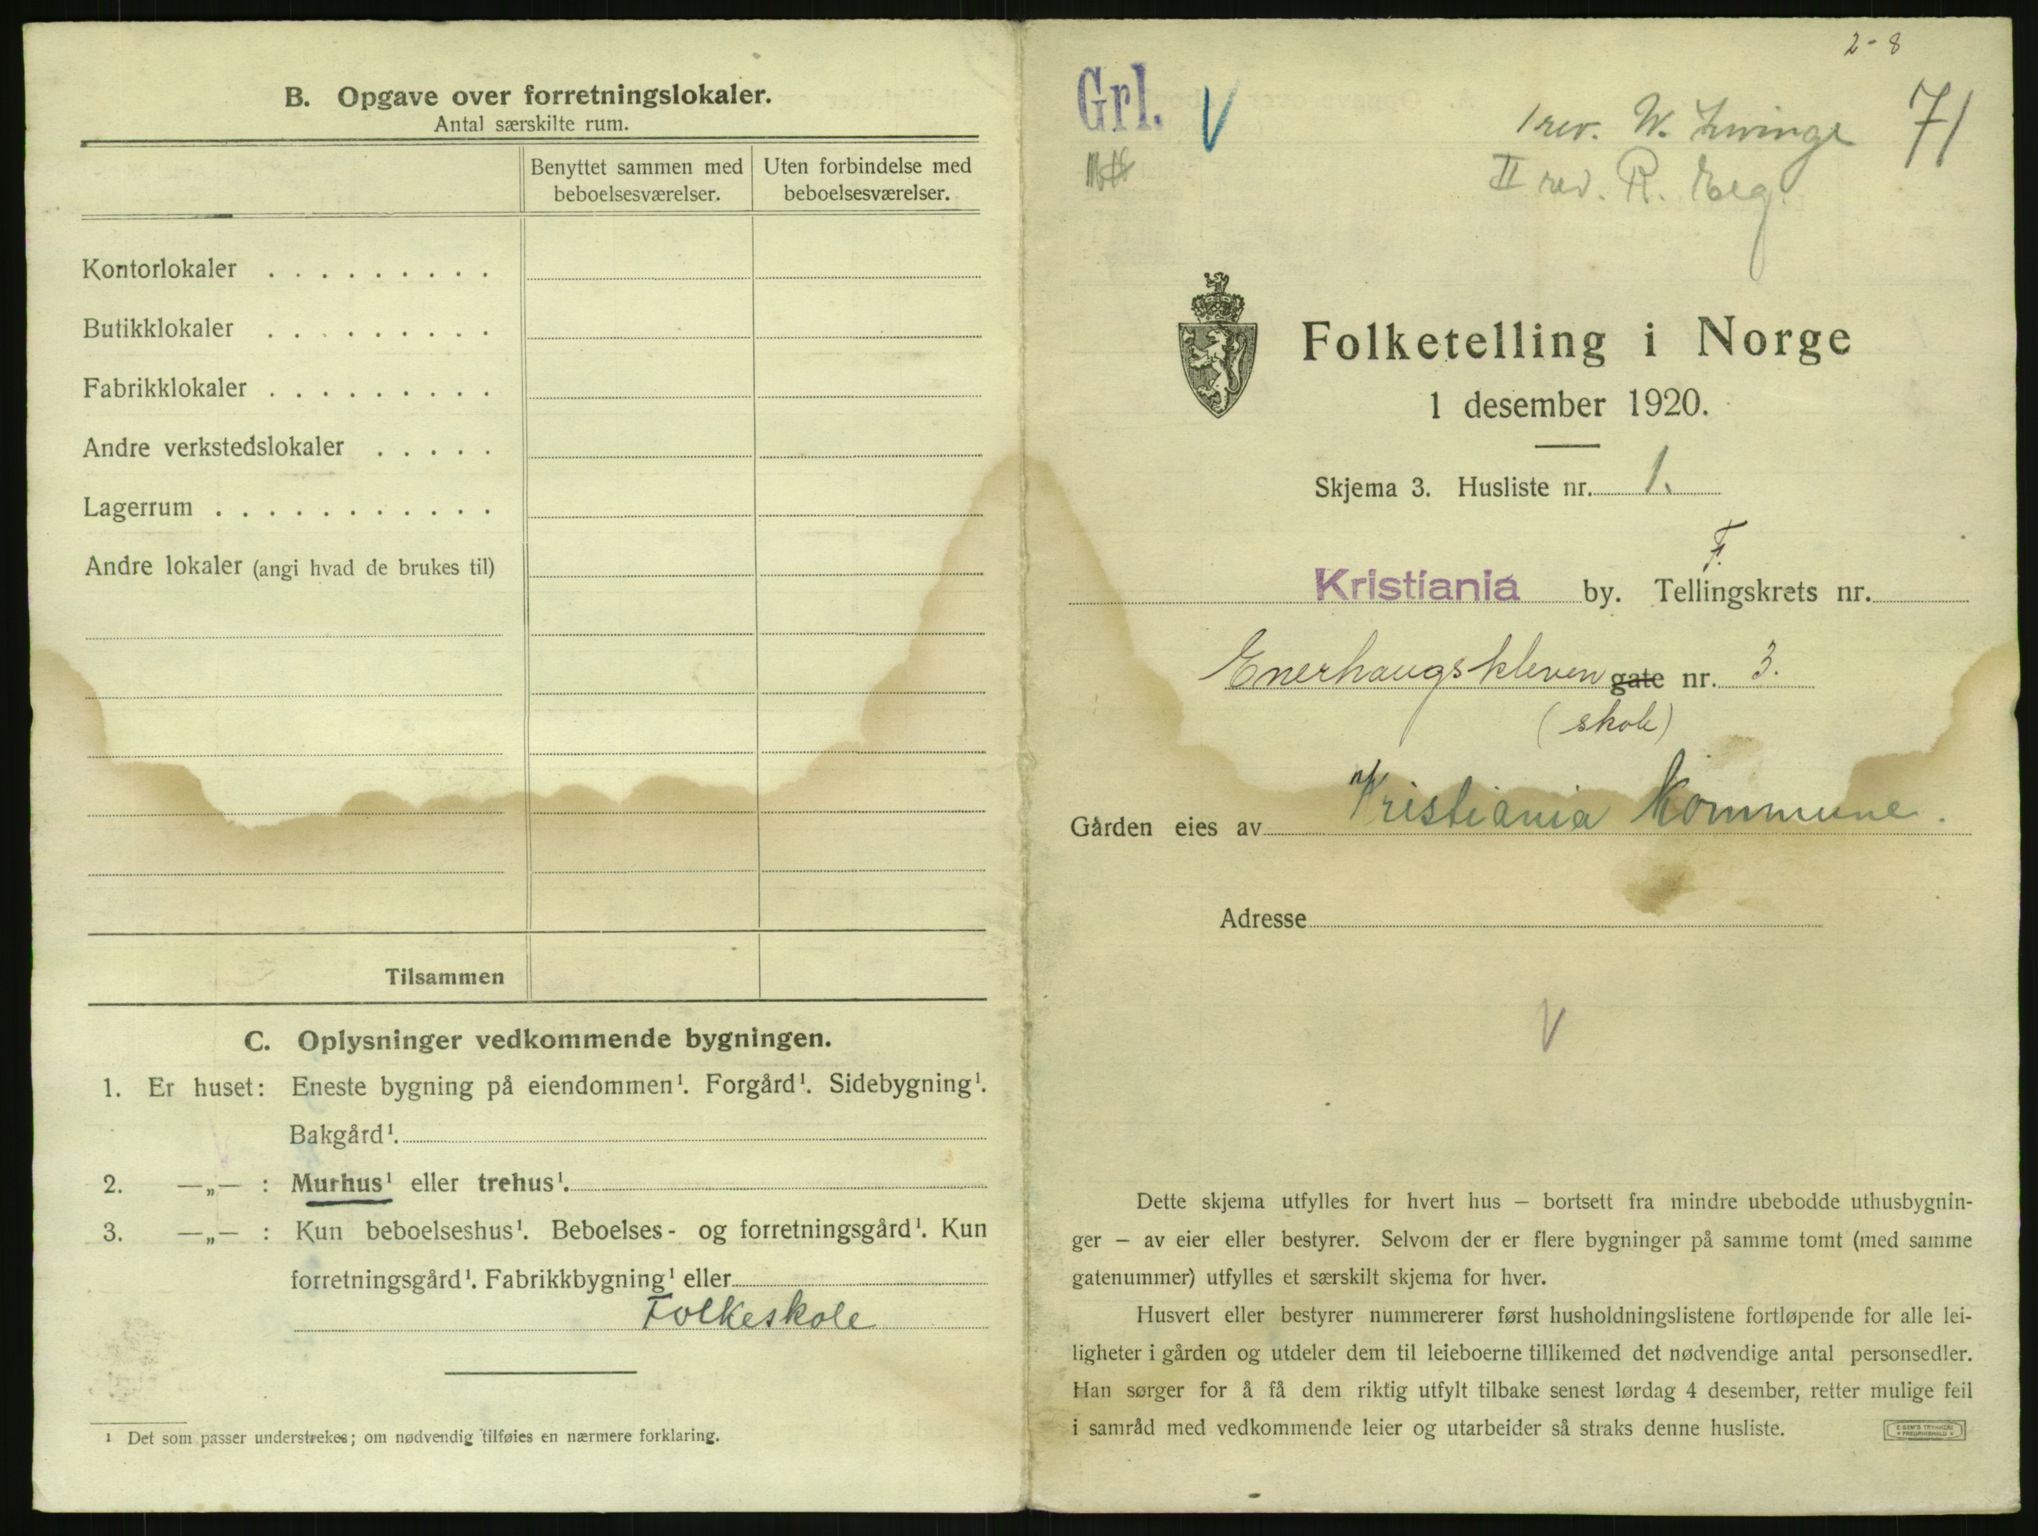 B. Opgave over forretningslokaler.
Antal særskilte rum.
Benyttet sammen med beboelsesværelser.
Uten forbindelse med beboelsesværelser.
Kontorlokaler . . . . . . . . .
Butikklokaler . . . . . . . . .
Fabrikklokaler . . . . . . . . .
Andre verkstedslokaler . . . . .
Lagerrum . . . . . . . . . . .
Andre lokaler (angi hvad de brukes til)
Tilsammen
C. Oplysninger vedkommende bygningen.
1. Er huset: Eneste bygning på eiendommen¹. Forgård¹. Sidebygning¹.
Bakgård¹.
2. —„— : Murhus¹ eller trehus¹.
3. —„— : Kun beboelseshus¹. Beboelses- og forretningsgård¹. Kun
forretningsgård¹. Fabrikkbygning¹ eller
Folkeskole
¹ Det som passer understrekes; om nødvendig tilføies en nærmere forklaring.
2-8
Grl. V
1 rev. W. Zwinge 71
II rev. R. Elg.
Folketelling i Norge
1 desember 1920.
Skjema 3. Husliste nr. 1.
F.
Kristiania by. Tellingskrets nr.
Enerhaugskleven gate nr. 3.
(skole)
Gården eies av Kristiania Kommune.
Adresse
V
Dette skjema utfylles for hvert hus – bortsett fra mindre ubebodde uthusbygnin-
ger – av eier eller bestyrer. Selvom der er flere bygninger på samme tomt (med samme
gatenummer) utfylles et særskilt skjema for hver.
Husvert eller bestyrer nummererer først husholdningslistene fortløpende for alle lei-
ligheter i gården og utdeler dem til leieboerne tillikemed det nødvendige antal personsedler.
Han sørger for å få dem riktig utfylt tilbake senest lørdag 4 desember, retter mulige feil
i samråd med vedkommende leier og utarbeider så straks denne husliste.